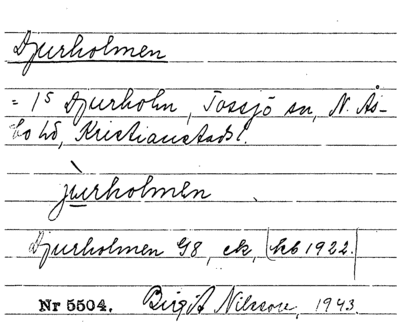 Djurholmen
= 1⁵ Djurholm, Tossjö sn, N. Ås-
bo hd, Kristianstads l.
jùrholmen
Djurholmen G8, ek, kb 1922.
Nr 5504. Birgit Nilsson, 1943.